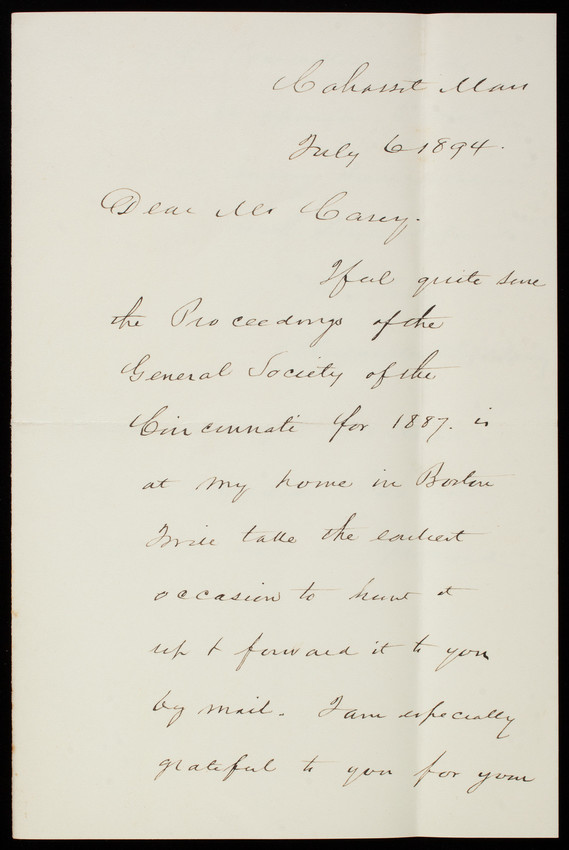 Cohasset Mass
July 6 1894.
Dear Mr Casey.
I feel quite sure
the Proceedings of the
General Society of the
Cincinnati for 1887. is
at my home in Boston
I will take the earliest
occasion to hunt it
up & forward it to you
by mail. I am especially
grateful to you for your